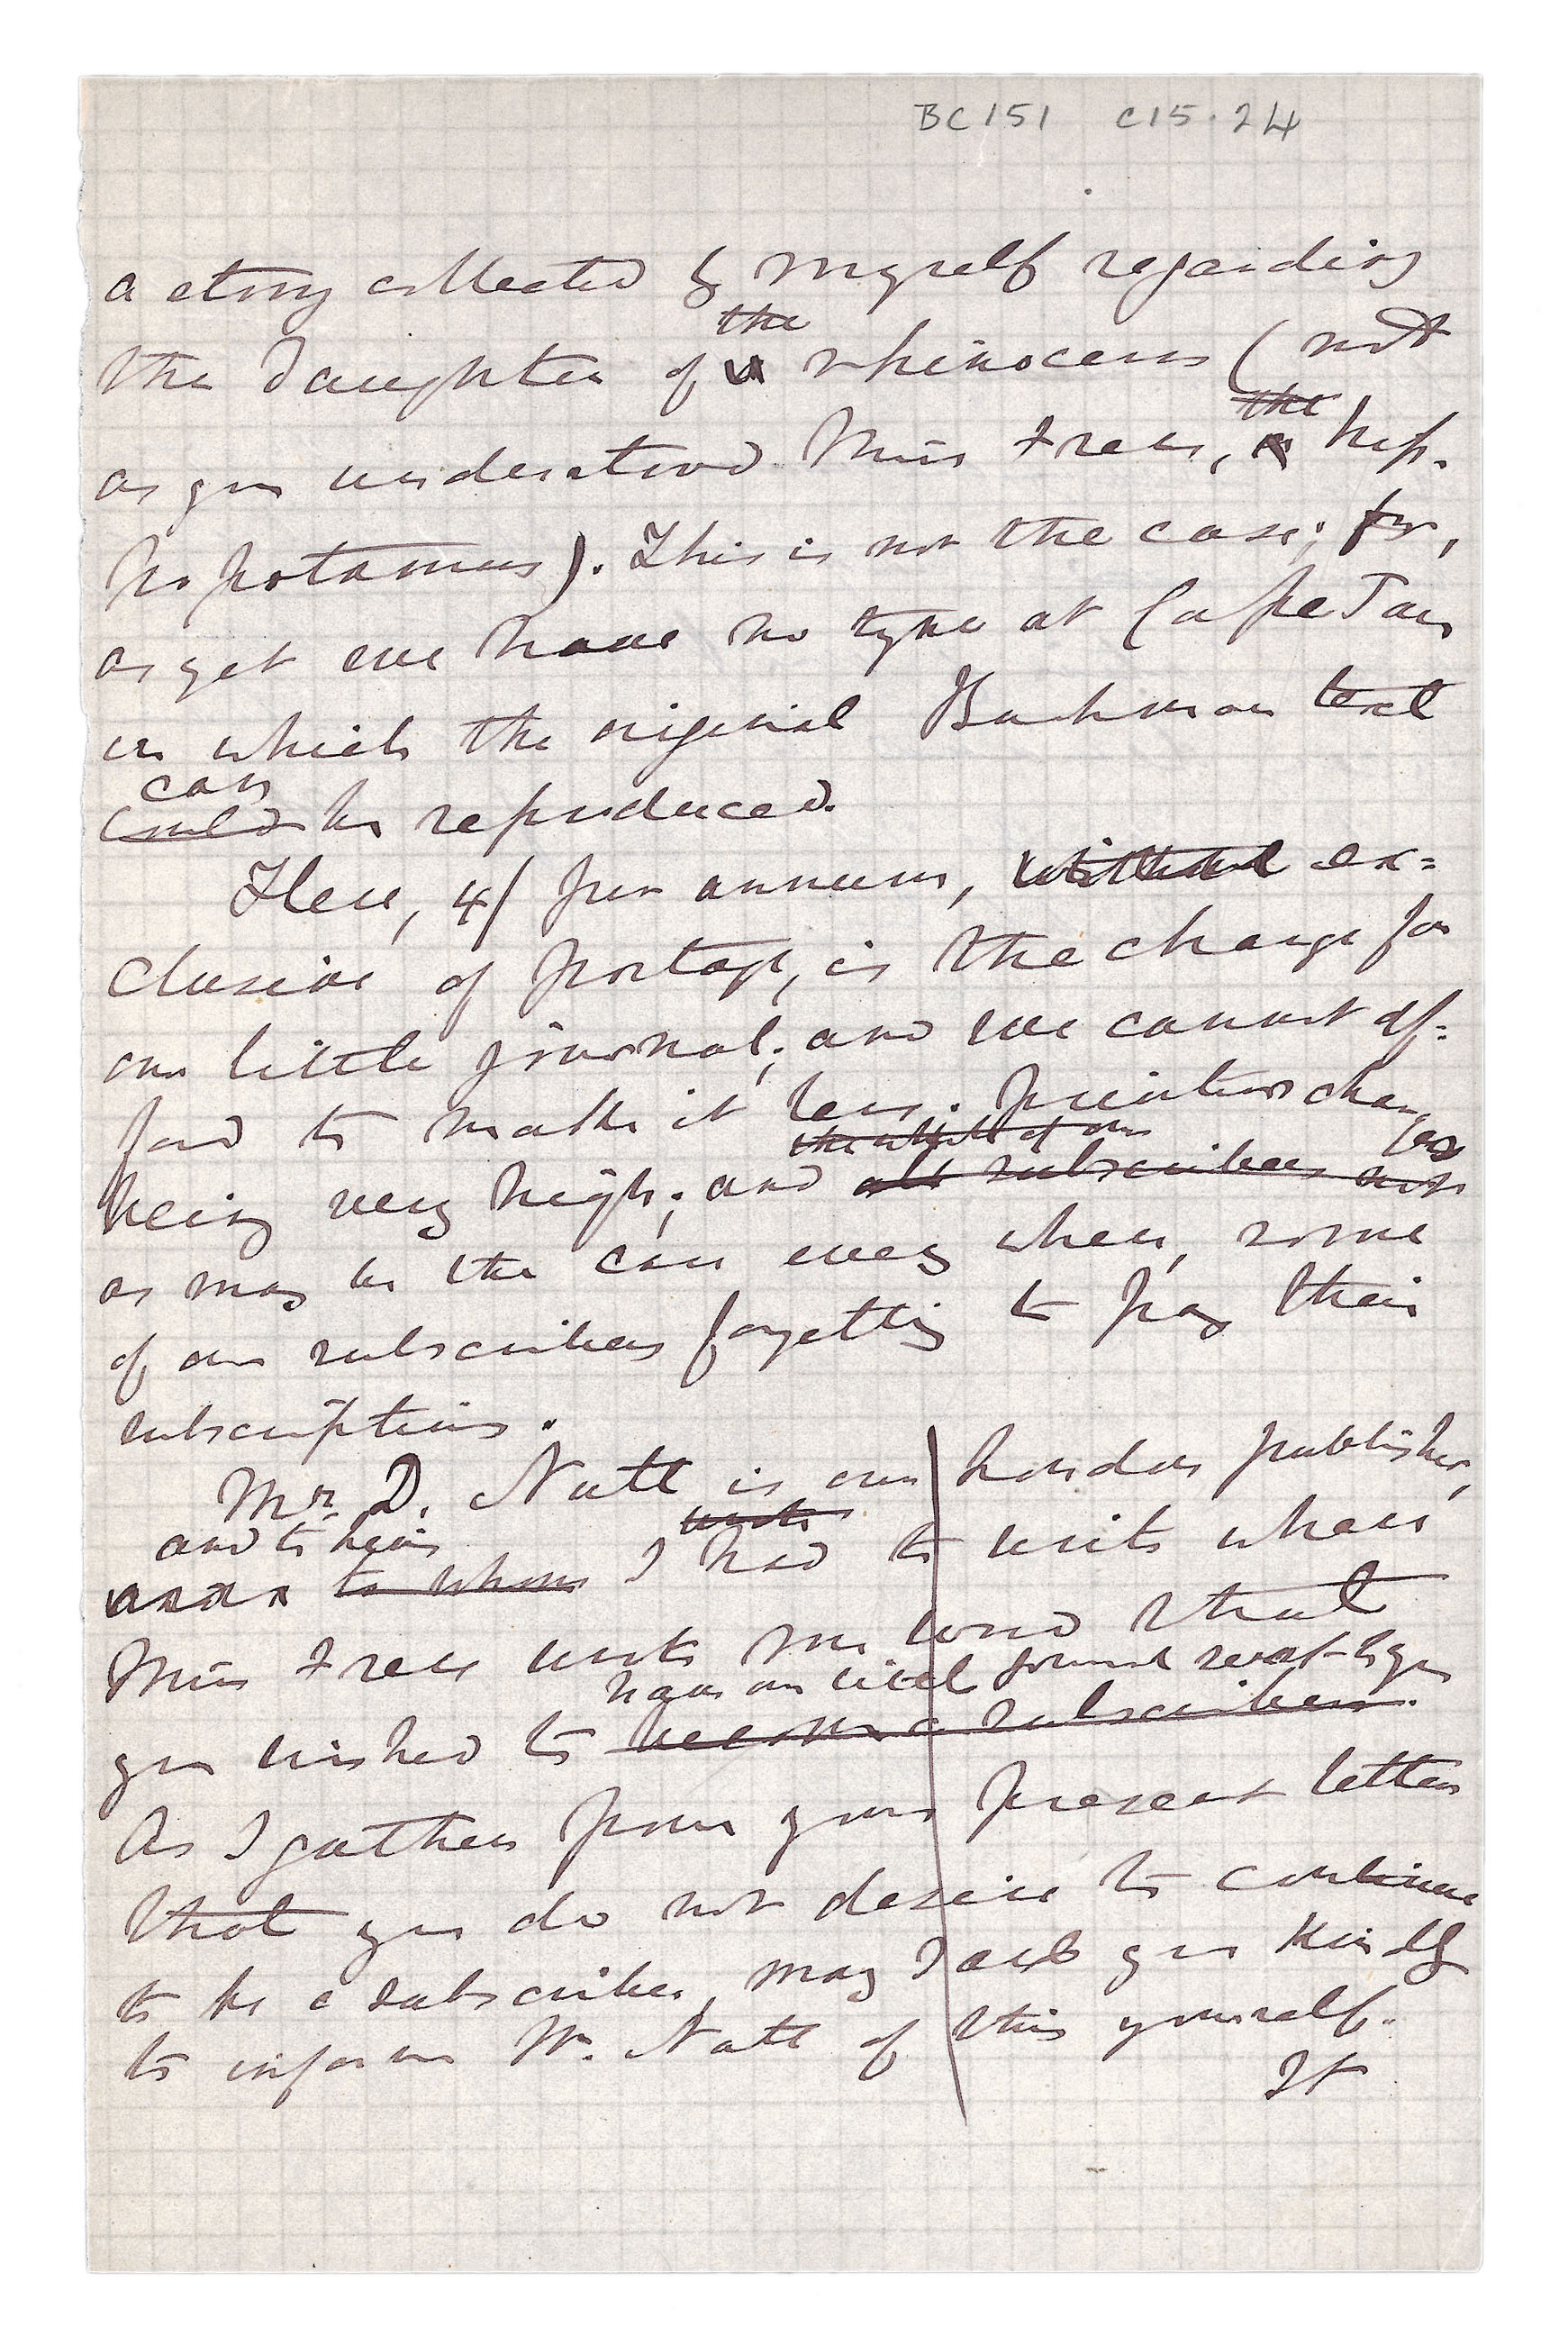 BC151 C15.24
a story collected by myself regarding
the
the daughter of a rhinoceros (not
the
as you understood Miss Frere, a hip-
popotamus). This is not the case; for,
as yet we have no type at Cape Town
in which the original Bushman text
can
could be reproduced.
Here, 4/ per annum, without ex=
clusive of postage, is the charge for
our little journal; and we cannot af=
ford to make it less. printers charges
the whole of our
being very high; and all subscribers not
as may be the case every where, some
of our subscribers forgetting to pay their
subscriptions.
Mr. D. Nutt is our London publisher,
and to him wrote
to whom I had to write when
Miss Frere wrote me word that
have our little journal sent to you
you wished to become a subscriber.
As I gather from your present letter
that you do not desire to continue
to be a subscriber, may I ask you kindly
to inform Mr. Nutt of this yourself.
It